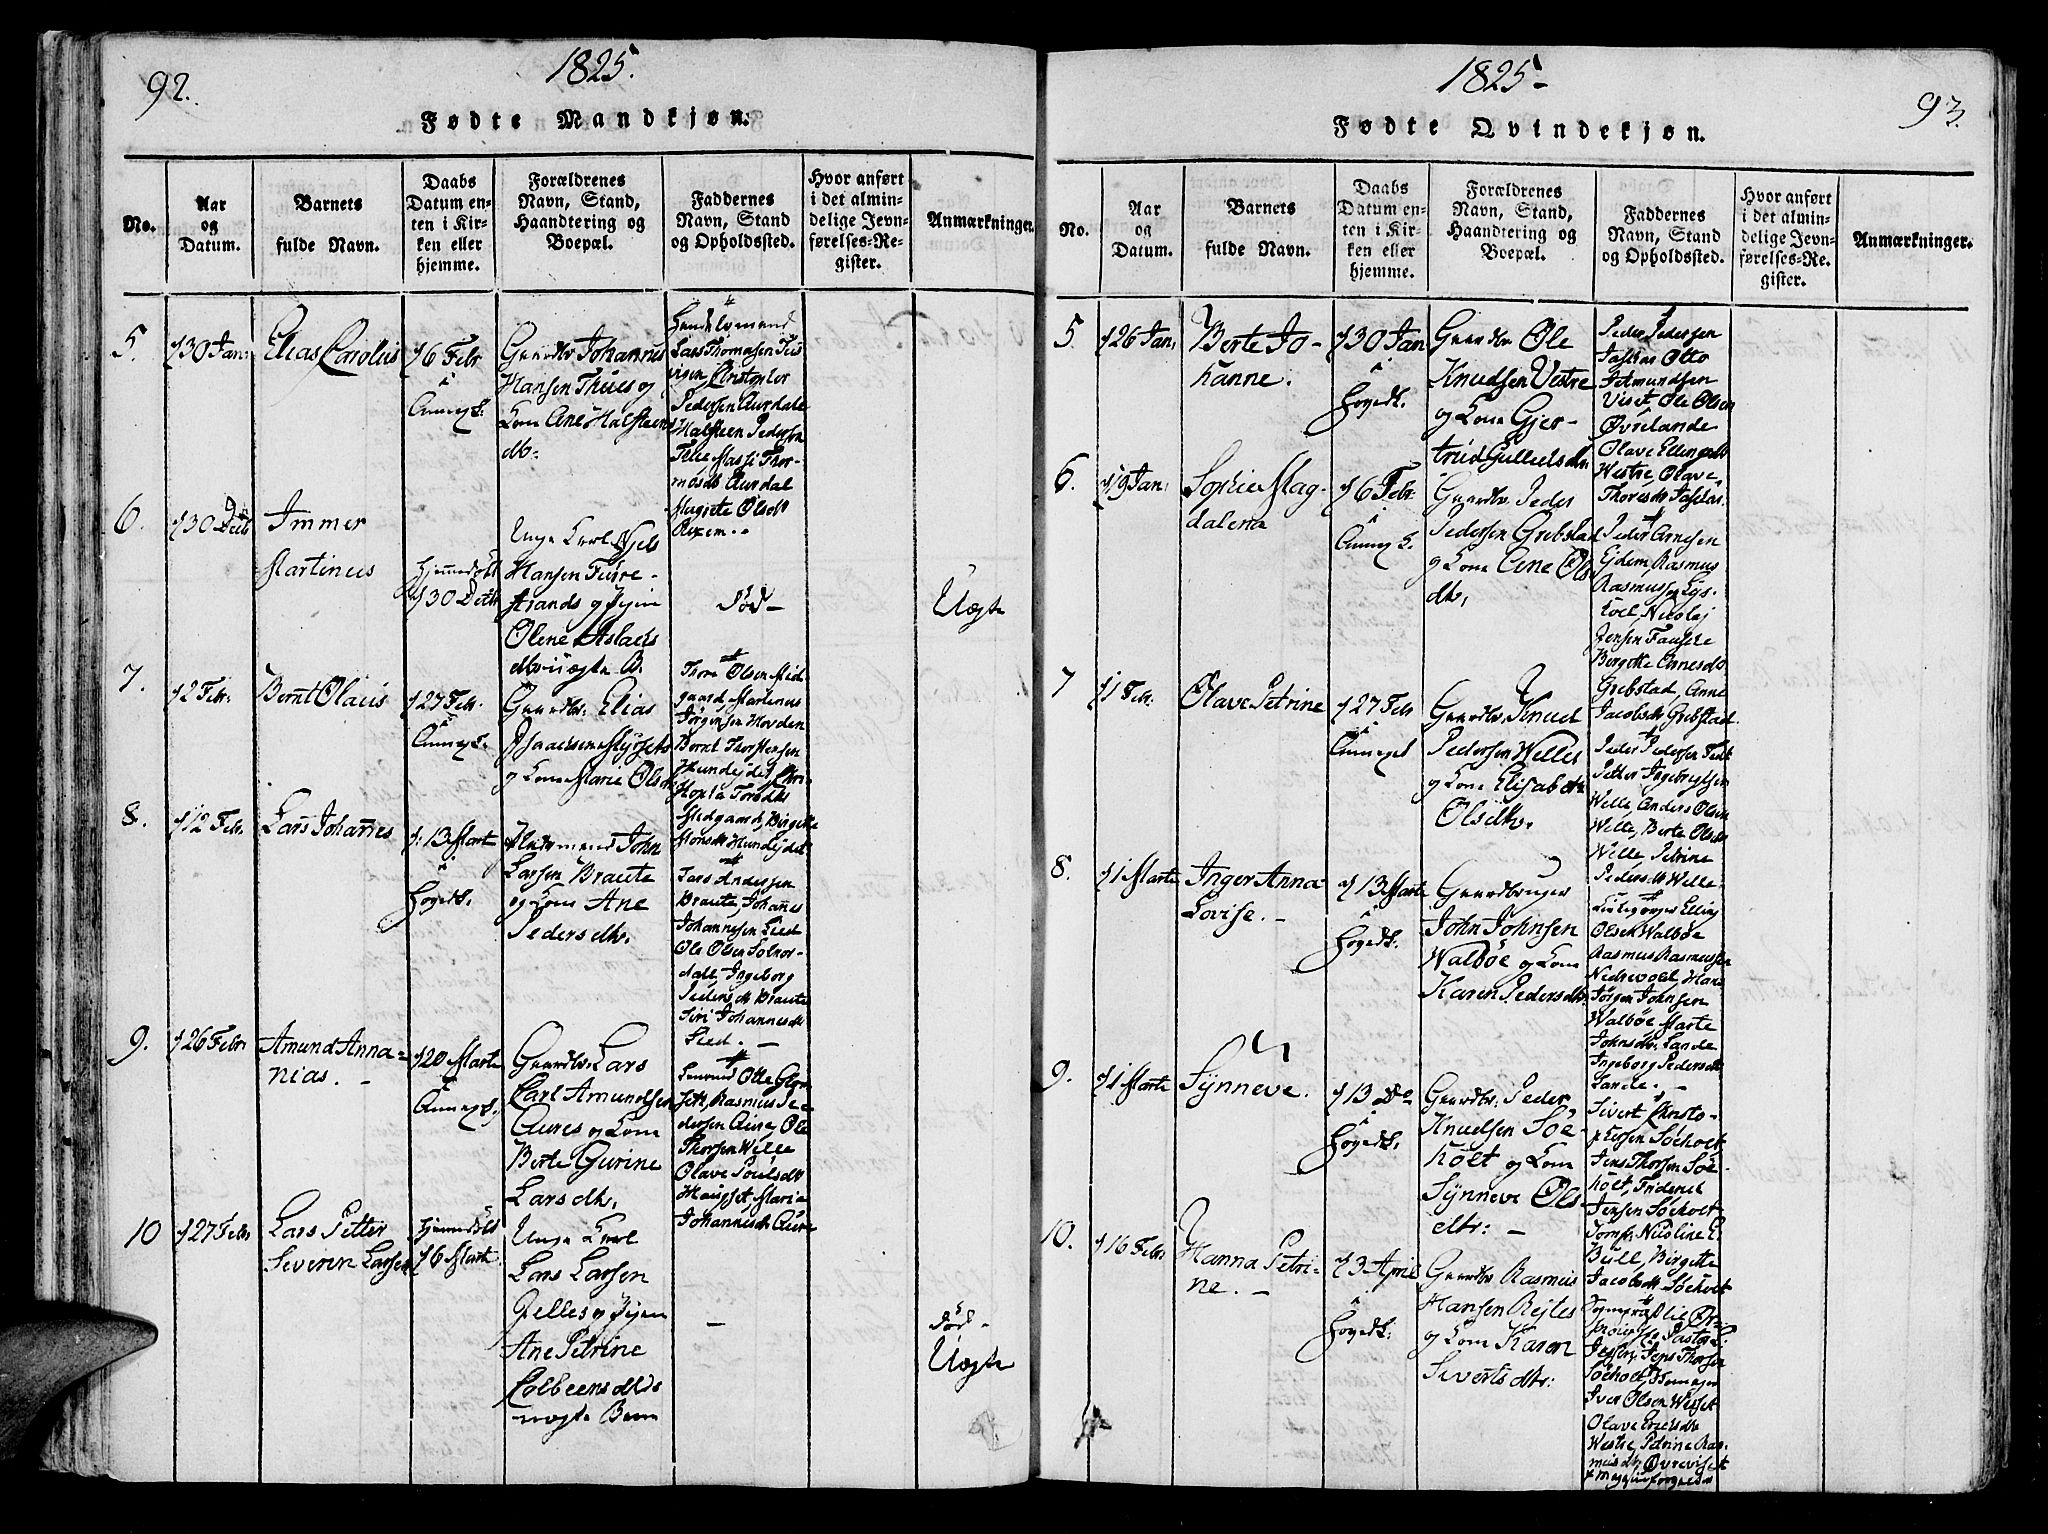 92.
1825.
Fødte Mandkjøn.
No.
Aar
og
Datum.
Barnets
fulde Navn.
Daabs
Datum en-
ten i Kir-
ken eller
hjemme.
Forældrenes
Navn, Stand,
Haandtering og
Boepæl.
Faddernes
Navn, Stand
og Opholdssted.
Hvor anført
i det almin-
delige Jevn-
førelses-Re-
gister.
Anmærkninger.
5.
30 Jan:
Elias Carolus
6 Febr
i
Annex
Gaardbr Johannes
Hansen Thues og
Kone Ane Halsteens
dtr
Lars Thomasen
Christopher
Pedersen Aurdale
Halsteen Pedersen
Aurdal
Magrete Olsdt
6.
30
Immer
Martinus
Hjemmedöbt
30
Unge Karl Niels
Hansen
strands og Pigen
Olene Aslachs
dtr uægte B.
död
Uægte
7.
2 Febr:
Bernt Olaus
27 Febr.
i
Annex
Gaardbr: Elias
Isaachsen
og Kone Marie Ols
Thore Olsen Med
gaard, Martinus
Jörgensen
Bernt Thorstensen
Hundejdet,
Medgaard, Birgitte
Monsdt Hundejdet
8.
12 Feb.
Lars Johannes
13 Marts
i
Hovedk.
John
Larsen Braute
og Kone Ane
Pedersdtr.
Lars Andersen
Braute, Johannes
Johannesen Lied
Ole Olsen Solnor-
dal, Ingeborg
Pedersdt Braute
Siri Johannesdt
Lied.
9.
26 Febr
Amund Anna-
nias.
20 Marts
i
Annex
Gaardbr. Lars
Carl Amundsen
Aures og Kone
Berte Gurine
Larsdtr.
Rasmus Pe-
dersen Aure, Ole
Thorsen Welle
Olave Poulsdt
Hauset Marie
Johannesdt Aure
10
27 Feb
Lars Petter
Severin Larsen
Hjemmedöbt
6 Mart
Unge Karl
Lars Larsen
Jelles og Pigen
Ane Petrine
Colbeensdtrs
uægte Barn
död
Uægte
1825
93.
Fødte Qvindekjøn.
No.
Aar
og
Datum.
Barnets
fulde Navn.
Daabs
Datum en-
ten i Kir-
ken eller
hjemme.
Forældrenes
Navn, Stand,
Haandtering og
Boepæl.
Faddernes
Navn, Stand
og Opholdssted.
Hvor anført
i det almin-
delige Jevn-
førelses-Re-
gister.
Anmærkninger.
5
26 Jan:
Berte Jo-
hanne.
30 Jan
i
Hovedk.
Gaardbr Ole
Knudsen Vestre
og Kone Gjer-
trud Gulliksdtr
Peder Pedersen
Otto
Viset Ole Olsen
Øvrelande
Olave Ellingsdt
Westre, Olave
Thoresdt
6.
19 Jan:
Sophie Mag-
dalena
6 Febr:
i
Annex K.
Gaardbr. Peder
Pedersen Grebstad
og Kone Ane Ols
dtr.
Peder Arnesen
Ejdem, Rasmus
Rasmussen
Nicolaj
Jensen Fauske
Birgitte Arnesdt
Grebstad, Anne
Jacobsdt Grebstad
7
1 Feb:
Olave Petrine
27 Feb
i
Annexet
Gaardbr. Knud
Pedersen Welles
og Kone Elisabet
Olsdtr.
Peder Pedersen
Petter Ingebrigtsen
Welle, Anders Olsen
Welle, Berte Olsdt
Welle, Petrine
Pedersdt Welle.
8.
1 Marts
Inger Anna
Lovise.
13 Marts
i
Hovedk:
Gaardbruger
John Johnsen
Walbøe og Kone
Karen Pedersdtr.
Elling
Olsen Walböe
Rasmus Rasmussen
Nedrevold, Hans
Jörgen Johnsen
Walböe Marte
Johnsdtr. Lande
Ingeborg Pedersdt
Lande.
9.
1 Marts
Sÿnneve.
13 Do
i
Hovedk.
Gaardbr. Peder
Knudsen Söe-
holt og Kone
Sÿnneve Ols
dtr:
Sivert Christo-
phersen Söeholt
Jens Thorsen Söe-
holt, Friderich
Jensen Söeholt
Jomfr. Nicoline E.
Bull, Birgitte
Jacobsdt Söeholt
10.
16 Feb
Hanna Petri-
ne.
3 April
i
Hovedk:
Gaardbr Rasmus
Hansen Rejtes
og Kone Karen
Sivertsdtr:
Pastor
Jens Thorsen
Söeholt,
Iver Olsen Westet
Olave Ericsdt
Westre, Petrine Ras-
musdt Øvreviset